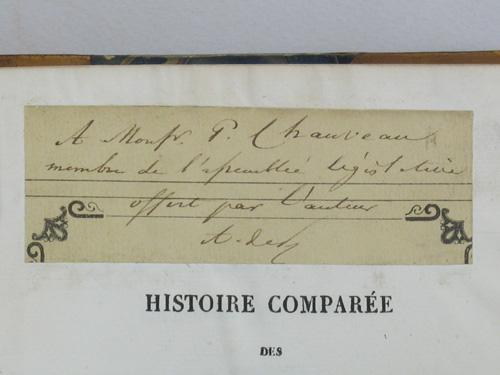 A Monsr. P. Chauveau
membre de l'assemblée législative
offert par l'auteur
HISTOIRE COMPARÉE
DES